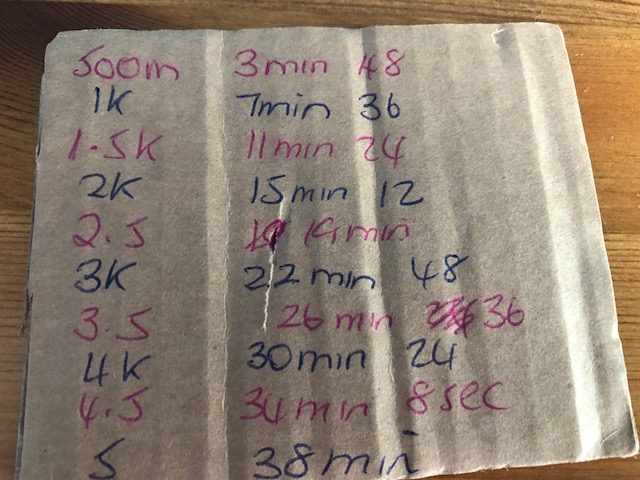 500m 3min 48
1K 7min 36
1.5K 11min 24
2K 15min 12
2.5 19min
3K 22min 48
3.5 26min 36
4K 30min 24
4.5 34min 8sec
5 38min